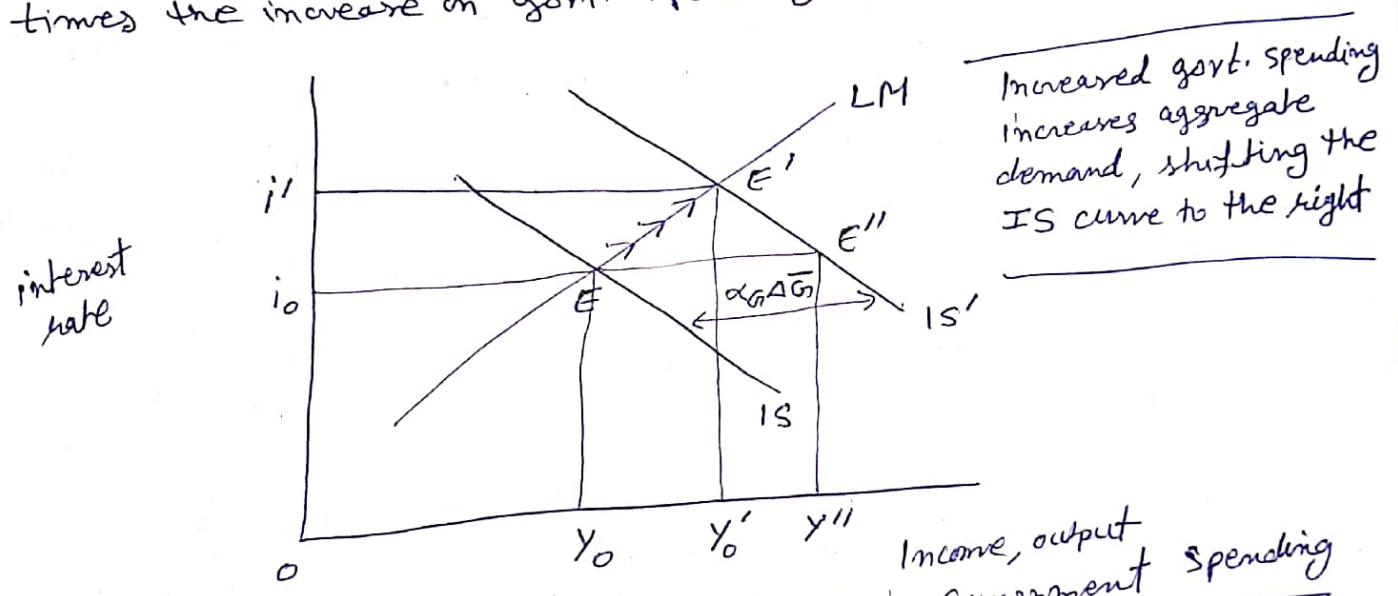 times the increase in govt.
LM
Increased govt. spending
increases aggregate
demand, shifting the
IS curve to the right
i'
E'
E''
interest
rate
i₀
E
α_GΔG̅
IS'
IS
0
Y₀
Y₀'
Y''
Income, output
government spending